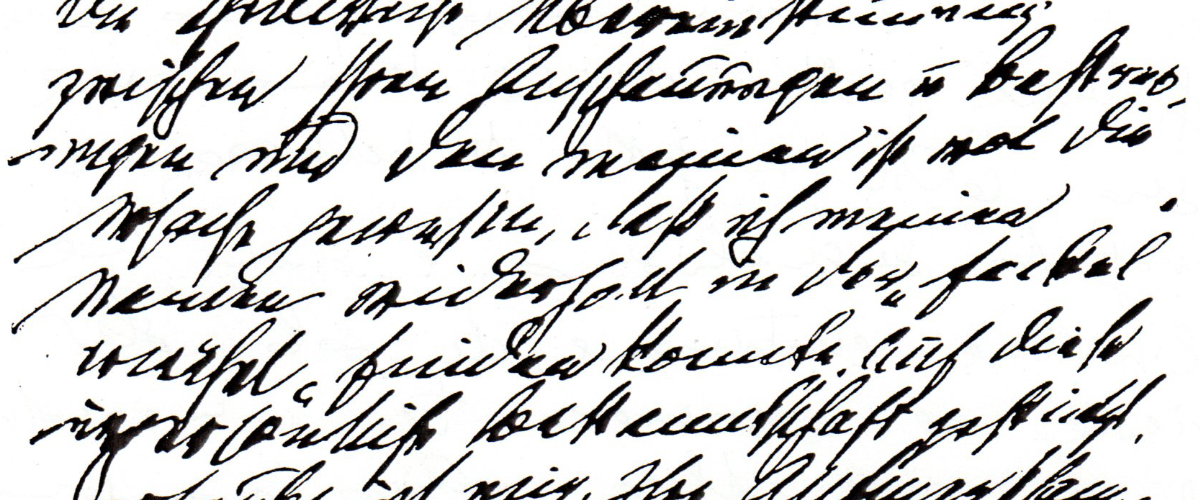 die
Übereinstimmung
zwischen Ihren Anschauungen u bestreb-
ungen und den meinen ist wol die
Ursache gewesen, daß ich meinen
Namen widerholt in der „ fackel
erwähnt „ finden konnte. Auf diese
unpersönliche bekanntschaft gestützt,
erlaube ich mir, Ihre